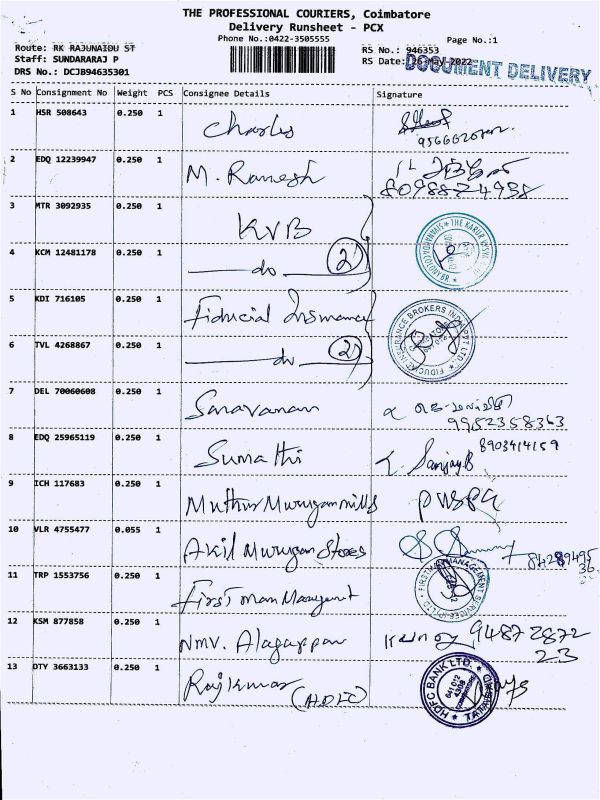 THE PROFESSIONAL COURIERS, Coimbatore
Delivery Runsheet - PCX
Phone No.:0422-3505555
Page No.:1
Route: RK RAJUNAIDU ST
Staff: SUNDARARAJ P
DRS No.: DCJB94635301
RS No.: 946353
RS Date: 26-May-2022
DOCUMENT DELIVERY
S No Consignment No Weight PCS Consignee Details Signature
1 HSR 508643 0.250 1 Charles
2 EDQ 12239947 0.250 1 M. Ramesh
8098874938
3 MTR 3092935 0.250 1 KVB
4 KCM 12481178 0.250 1 do 2
5 KDI 716105 0.250 1 Fiducial Insurance
6 TVL 4268867 0.250 1 do 2
7 DEL 70060608 0.250 1 Saravanan
9952358363
8 EDQ 25965119 0.250 1 Sumathi Sanjay B 8903414159
9 ICH 117683 0.250 1 Muthur Murugan mills
10 VLR 4755477 0.055 1 Akil Murugan Stores
11 TRP 1553756 0.250 1 First man Management
12 KSM 877858 0.250 1 NMV. Alagappan 94872872
23
13 DTY 3663133 0.250 1 Rajkumar (HDFC)
HDFC BANK LTD.
641 012